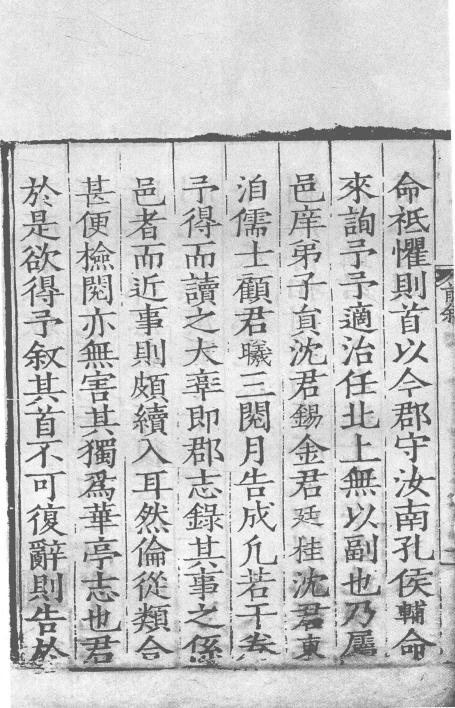 命祗懼則首以今郡守汝南孔侯輔命
來詢予予適治任北上無以副也乃屬
邑庠弟子員沈君錫金君廷桂沈君東
洎儒士顧君曦三閱月告成凢若干卷
予得而讀之大率即郡志錄其事之係
邑者而近事則頗續入耳然倫從類合
甚便檢閱亦無害其獨爲華亭志也君
於是欲得予叙其首不可復辭則告於